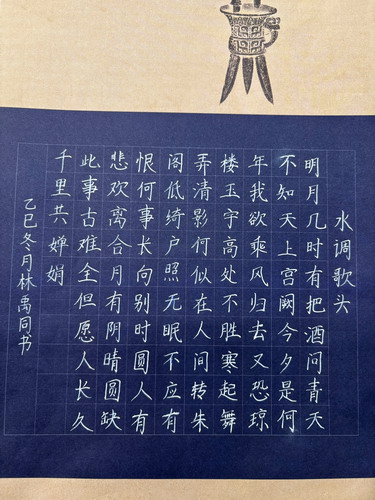 水调歌头
明月几时有把酒问青天
不知天上宫阙今夕是何
年我欲乘风归去又恐琼
楼玉宇高处不胜寒起舞
弄清影何似在人间转朱
阁低绮户照无眠不应有
恨何事长向别时圆人有
悲欢离合月有阴晴圆缺
此事古难全但愿人长久
千里共婵娟
乙巳冬月林禹同书